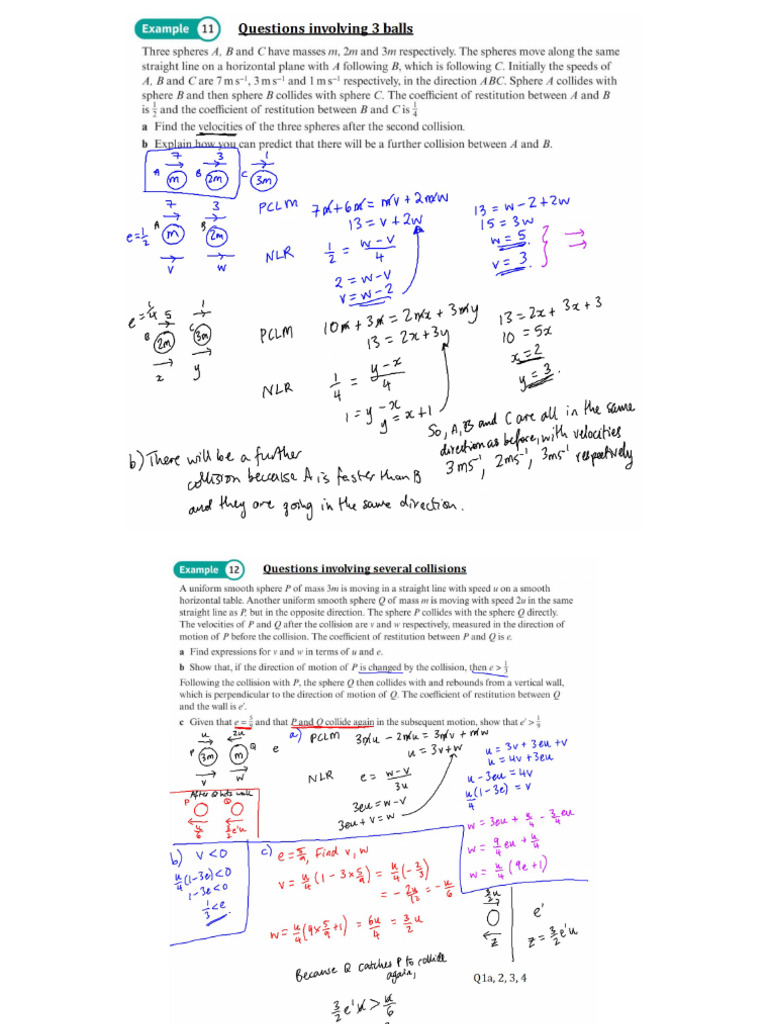 Example 11 Questions involving 3 balls
Three spheres A, B and C have masses m, 2m and 3m respectively. The spheres move along the same
straight line on a horizontal plane with A following B, which is following C. Initially the speeds of
A, B and C are 7 m s⁻¹, 3 m s⁻¹ and 1 m s⁻¹ respectively, in the direction ABC. Sphere A collides with
sphere B and then sphere B collides with sphere C. The coefficient of restitution between A and B
is 1/2 and the coefficient of restitution between B and C is 1/4
a Find the velocities of the three spheres after the second collision.
b Explain how you can predict that there will be a further collision between A and B.
7 3 1
A m B 2m C 3m
7 3
e=1/2 A m B 2m
v w
PCLM 7m+6m = mv + 2mw
13 = v + 2w
NLR 1/2 = (w-v)/4
2 = w-v
v = w-2
13 = w-2+2w
15 = 3w
w = 5
v = 3
e=1/4 5 1
B 2m C 3m
x y
PCLM 10m + 3m = 2mx + 3my
13 = 2x + 3y
NLR 1/4 = (y-x)/4
1 = y-x
y = x+1
13 = 2x + 3x + 3
10 = 5x
x = 2
y = 3
So, A, B and C are all in the same
direction as before, with velocities
3ms⁻¹, 2ms⁻¹, 3ms⁻¹ respectively
b) There will be a further
collision because A is faster than B
and they are going in the same direction.
Example 12 Questions involving several collisions
A uniform smooth sphere P of mass 3m is moving in a straight line with speed u on a smooth
horizontal table. Another uniform smooth sphere Q of mass m is moving with speed 2u in the same
straight line as P, but in the opposite direction. The sphere P collides with the sphere Q directly.
The velocities of P and Q after the collision are v and w respectively, measured in the direction of
motion of P before the collision. The coefficient of restitution between P and Q is e.
a Find expressions for v and w in terms of u and e.
b Show that, if the direction of motion of P is changed by the collision, then e > 1/3
Following the collision with P, the sphere Q then collides with and rebounds from a vertical wall,
which is perpendicular to the direction of motion of Q. The coefficient of restitution between Q
and the wall is e′.
c Given that e = 5/9 and that P and Q collide again in the subsequent motion, show that e′ > 1/9
u 2u
P 3m m Q e
v w
a) PCLM 3mu - 2mu = 3mv + mw
u = 3v+w
NLR e = (w-v)/3u
3eu = w-v
3eu + v = w
u = 3v + 3eu + v
u = 4v + 3eu
u - 3eu = 4v
u/4(1-3e) = v
w = 3eu + u/4 - 3/4 eu
w = 9/4 eu + u/4
w = u/4 (9e+1)
After Q hits wall
P Q
u/6 3/2 e'u
b) v<0
u/4(1-3e)<0
1-3e<0
1/3<e
c) e=5/9, Find v, w
v = u/4(1-3×5/9) = u/4(-2/3)
= -2u/12 = -u/6
w = u/4(9×5/9+1) = 6u/4 = 3/2 u
3u/2
z
e'
z = 3/2 e'u
Because Q catches P to collide
again,
3/2 e'u > u/6
Q1a, 2, 3, 4